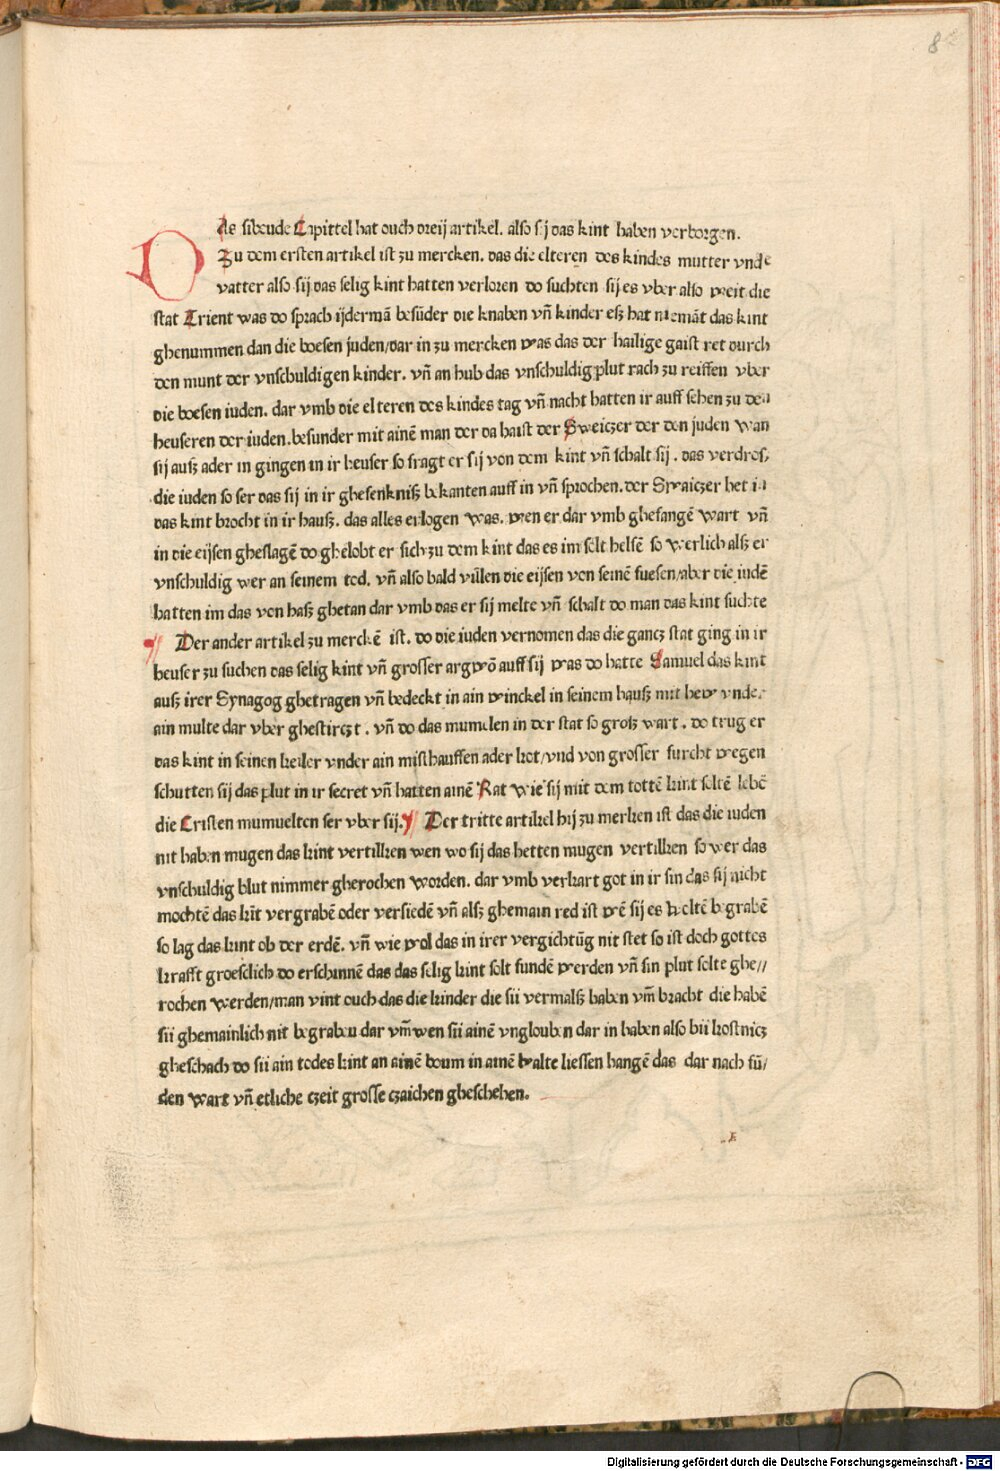 8
DAs sibende Capittel hat ouch dreij artikel. also sij das kint haben verborgen.
Zu dem ersten artikel ist zu mercken. das die elteren des kindes mutter vnde
vatter also sij das selig kint hatten verloren do suchten sij es vber also weit die
stat Trient was do sprach ijdermā besūder die knaben vn̄ kinder esz hat niemāt das kint
ghenummen dan die boesen juden/dar in zu mercken was das der hailige gaist ret durch
den munt der vnschuldigen kinder. vn̄ an hub das vnschuldig plut rach zu reissen vber
die boesen iuden. dar vmb die elteren des kindes tag vn̄ nacht hatten ir auff sehen zu den
heuseren der iuden.besunder mit ainē man der da haist der Sweiczer der den juden wan
sij ausz ader in gingen in ir heuser so fragt er sij von dem kint vn̄ schalt sij. das verdros,
die iuden so ser das sij in ir ghefenknisz bekanten auff in vn̄ sprochen.der Swaiczer het in
das kint brocht in ir hausz. das alles erlogen was. wen er dar vmb ghefangē wart vn̄
in die eijsen gheslagē do ghelobt er sich zu dem kint das es im solt helfē so werlich alsz er
vnschuldig wer an seinem tod. vn̄ also bald villen die eijsen von seinē fuesen/aber die iudē
hatten im das von hasz ghetan dar vmb das er sij melte vn̄ schalt do man das kint suchte
¶ Der ander artikel zu merckē ist. do die iuden vernomen das die gancz stat ging in ir
heuser zu suchen das selig kint vn̄ grosser argwō auff sij was do hatte Samuel das kint
ausz irer Synagog ghetragen vn̄ bedeckt in ain winckel in seinem hausz mit hew vnder
ain multe dar vber ghestirczt. vn̄ do das mumelen in der stat so grosz wart. do trug er
das kint in seinen keller vnder ain misthauffen ader kot/vnd von grosser furcht wegen
schutten sij das plut in ir secret vn̄ hatten ainē Rat wie sij mit dem tottē kint soltē lebē
die Cristen mumuelten ser vber sij.¶ Der tritte artikel hij zu merken ist das die iuden
nit haben mugen das kint vertilken wen wo sij das hetten mugen vertilken so wer das
vnschuldig blut nimmer gherochen worden. dar vmb verkart got in ir sin das sij nicht
mochtē das kīt vergrabē oder versiedē vn̄ alsz ghemain red ist wē sij es woltē begrabē
so lag das kint ob der erdē. vn̄ wie wol das in irer vergichtūg nit stet so ist doch gottes
krafft groeslich do erschinnē das das selig kint solt fundē werden vn̄ sin plut solte ghe//
rochen werden/man vint ouch das die kinder die sii vermalsz haben vm̄ bracht die habē
sii ghemainlich nit begraben dar vm̄ wen sii ainē vnglouben dar in haben also bii kostnicz
gheschach do sii ain todes kint an ainē boum in ainē walte liessen hangē das dar nach fū/
den wart vn̄ etliche czeit grosse czaichen gheschehen.
Digitalisierung gefördert durch die Deutsche Forschungsgemeinschaft - DFG